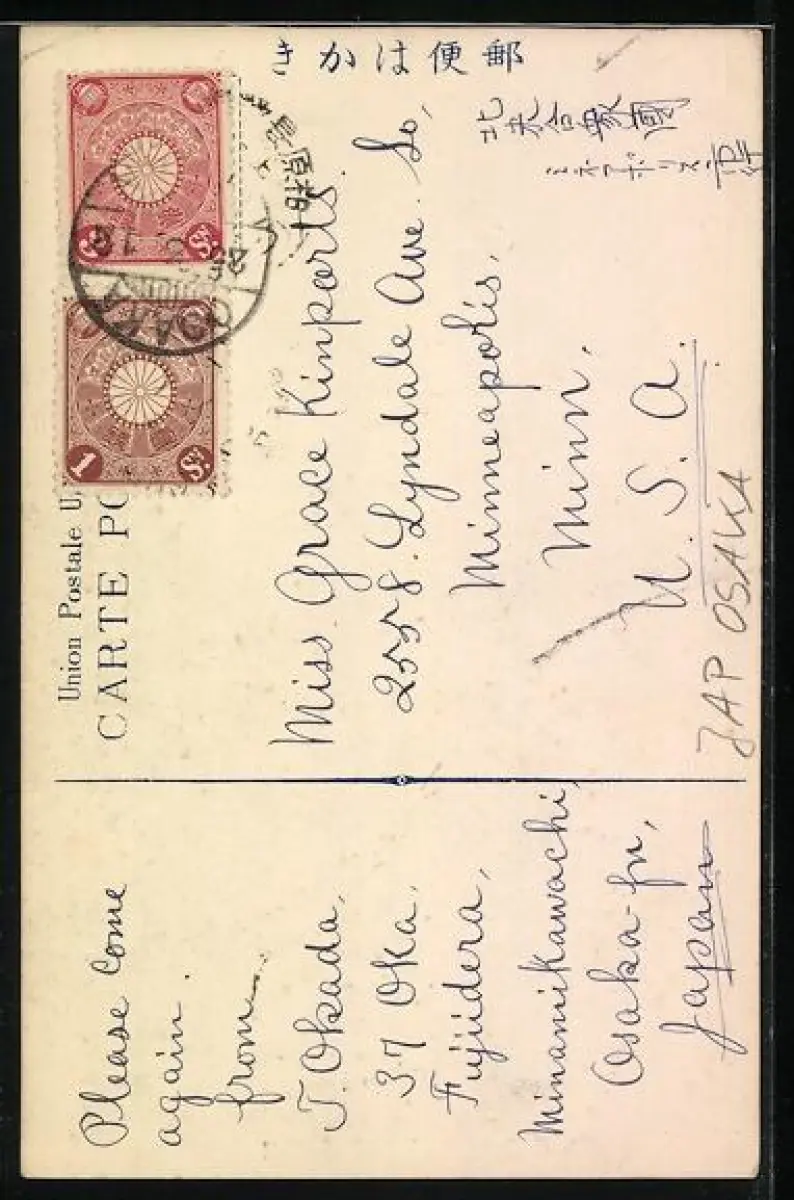 きかは便郵
北米合衆國
ミネアポリス市
3 Sn.
1 Sn.
OSAKA
Union Postale U
CARTE PO
Miss. Grace Kinports.
2558. Lyndale Ave. So,
Minneapolis,
Minn,
U. S. A.
JAP OSAKA
Please Come
again.
from
T. Okada,
37 Oka.
Fujiidera,
Minamikawachi,
Osaka-fu,
Japan